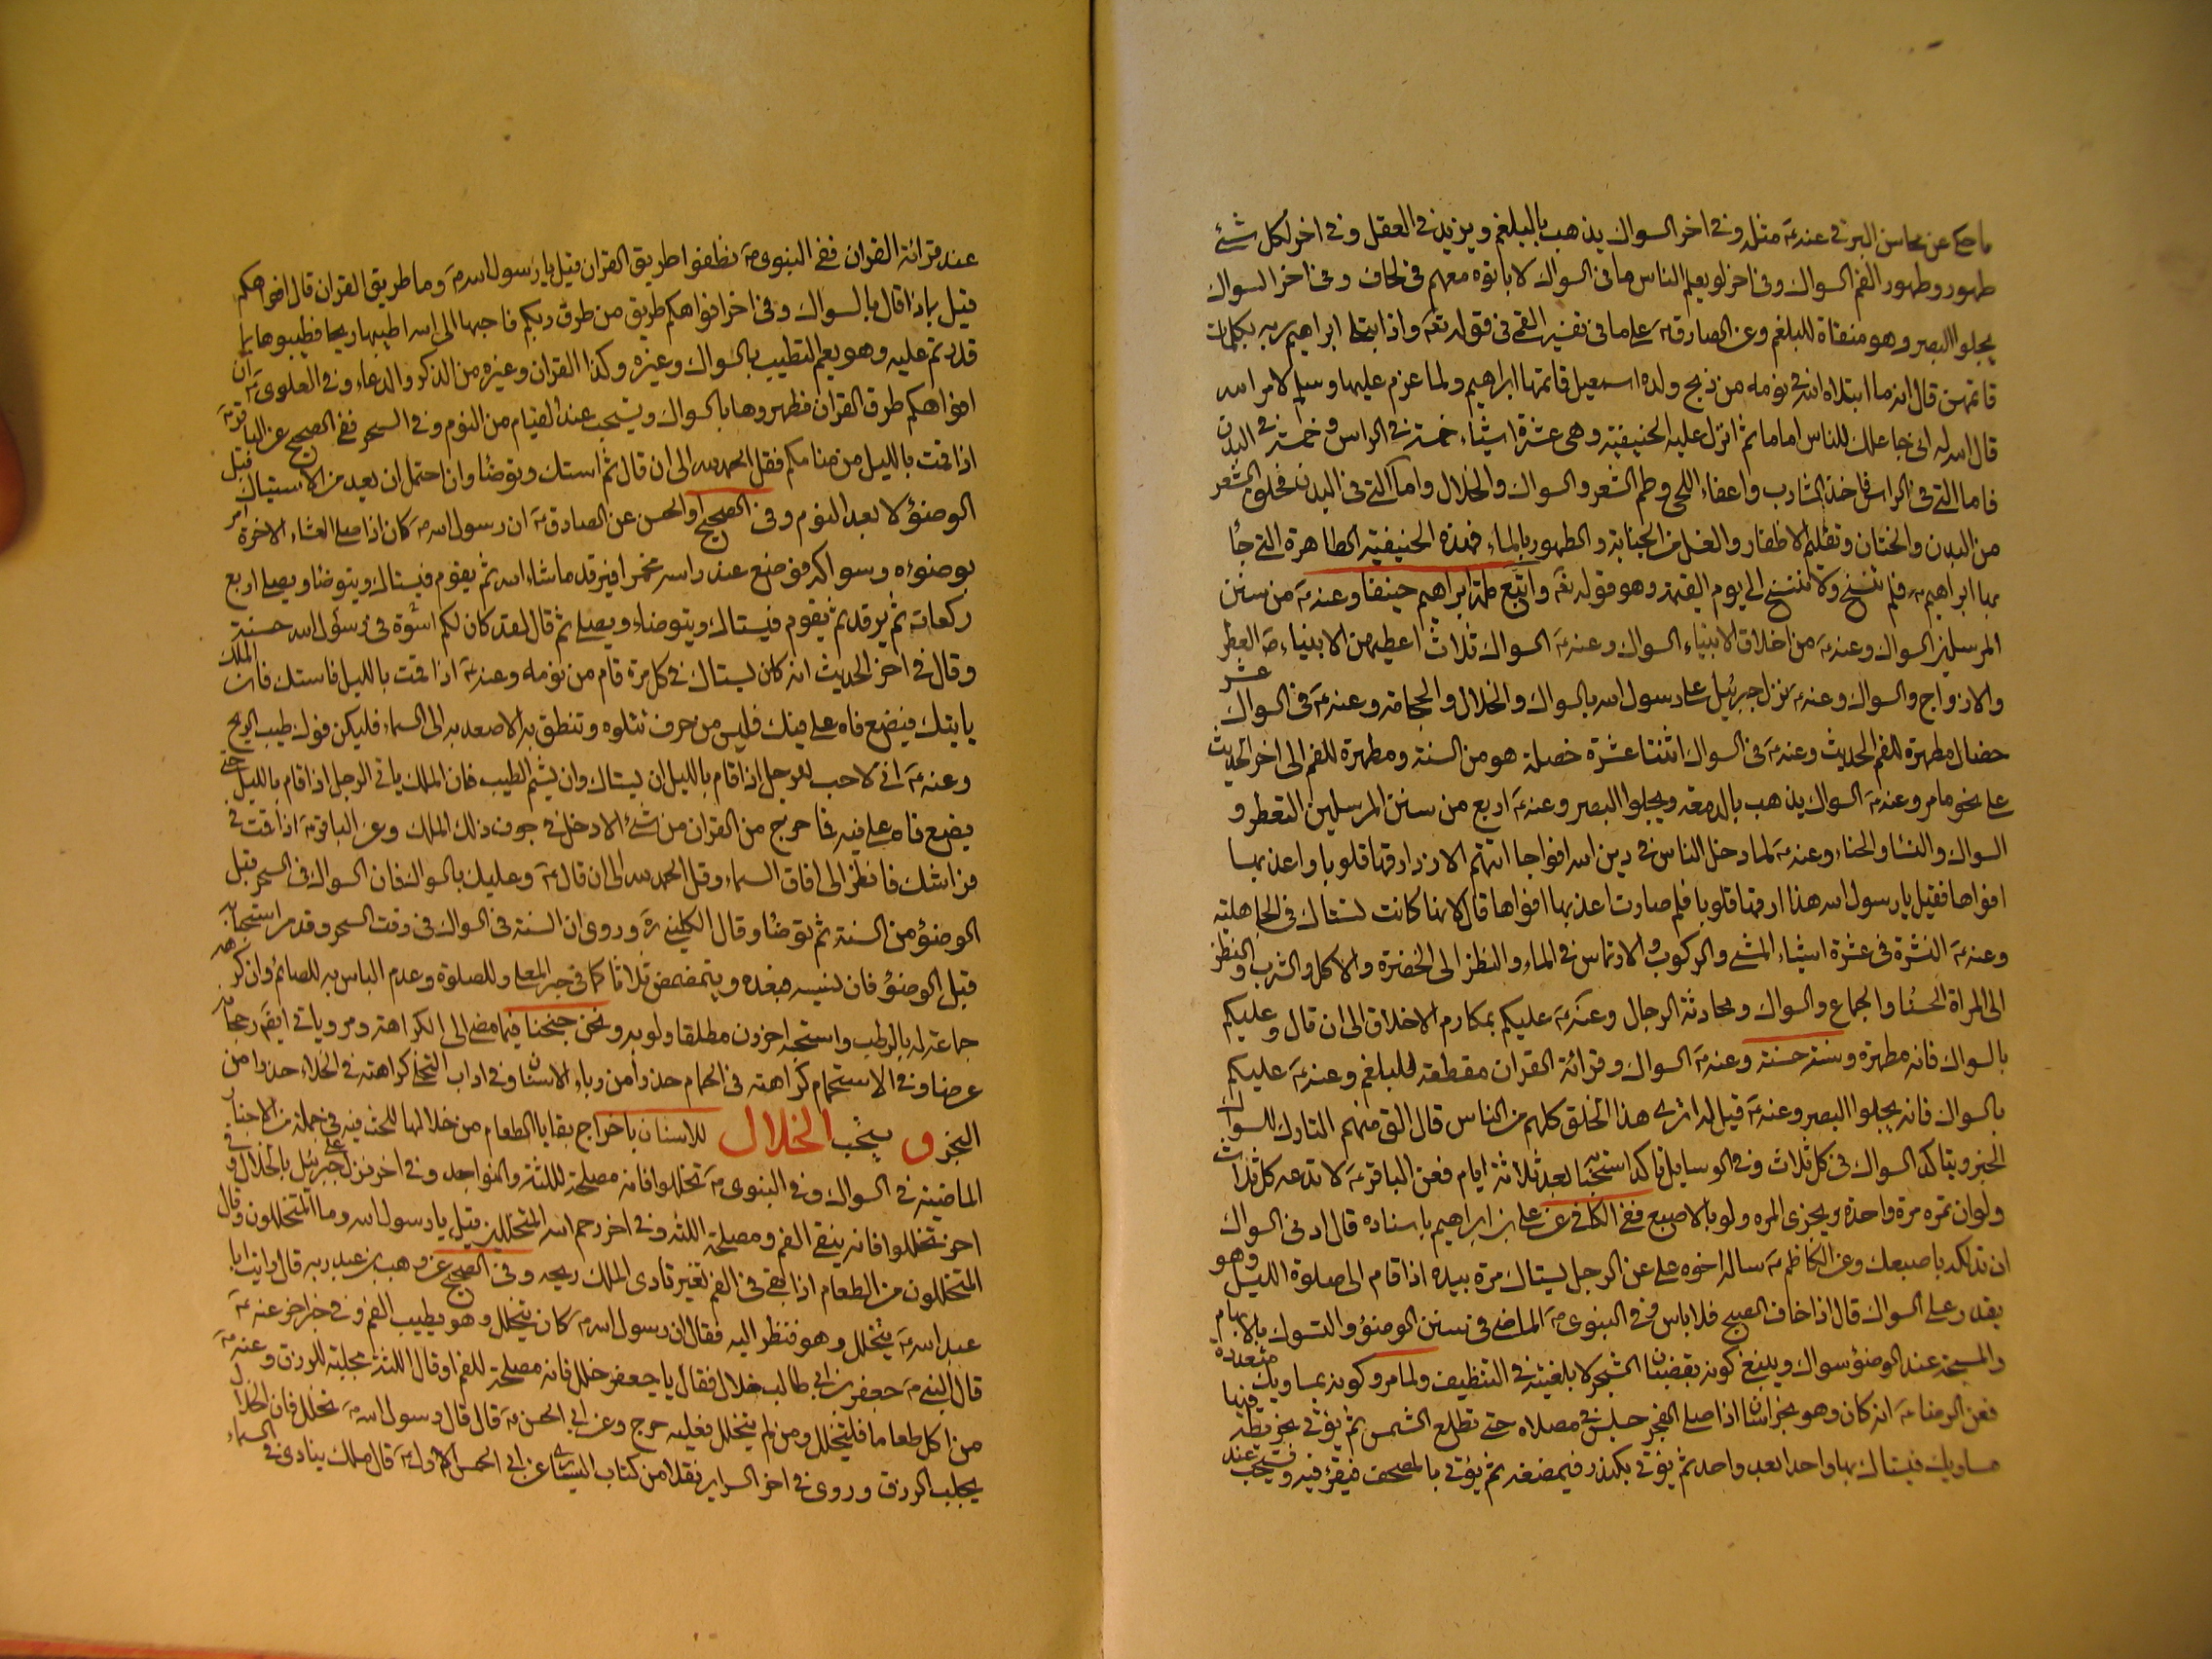 ما حكى عن محاسن البرقى عنه ع مثله وفى اخر السواك يذهب بالبلغم ويزيد فى العقل وفى اخر لكل شئ
طهور وطهور الفم السواك وفى اخر لو يعلم الناس ما فى السواك لاباتوه معهم فى لحاف وفى اخر السواك
يجلوا البصر وهو منفاة للبلغم وعن الصادق ع على ما فى تفسير القمى فى قوله تعه واذ ابتلى ابراهيم ربه بكلمات
فاتمهن قال انه ما ابتلاه الله فى نومه من ذبح ولده اسمعيل فاتمها ابراهيم ولما عزم عليها وسلم لامر الله
قال الله له انى جاعلك للناس اماما ثم انزل عليه الحنيفية وهى عشرة اشياء خمسة فى الراس وخمسة فى البدن
فاما التى فى الراس فاخذ الشارب واعفاء اللحى وطم الشعر والسواك والخلال واما التى فى البدن فحلق الشعر
من البدن والختان وتقليم الاظفار والغسل من الجنابة والطهور بالماء فهذه الحنيفية الطاهرة التى جاء
بها ابراهيم ع فلم تنسخ ولا تنسخ الى يوم القيمة وهو قوله تعه واتبع ملة ابراهيم حنيفا وعنه ع من سنن
المرسلين السواك وعنه ع من اخلاق الانبياء السواك وعنه ع السواك ثلاث اعطيهن الانبياء ص العطر
والازواج والسواك وعنه ع نزل جبرئيل على رسول الله بالسواك والخلال والحجامة وعنه ع فى السواك عشر
خصال مطهرة للفم الحديث وعنه ع فى السواك اثنتا عشرة خصلة هو من السنة ومطهرة للفم الى اخر الحديث
على نحو ما مر وعنه ع السواك يذهب بالدمعة ويجلوا البصر وعنه ع اربع من سنن المرسلين التعطر و
السواك والنساء والحناء وعنه ع لما دخل الناس فى دين الله افواجا اتتهم الازد ارقها قلوبا واعذبها
افواها فقيل يا رسول الله هذا ارقها قلوبا فلم صارت اعذبها افواها قال لانها كانت تستاك فى الجاهلية
وعنه ع النشرة فى عشرة اشياء المشى والركوب والارتماس فى الماء والنظر الى الخضرة والاكل والشرب والنظر
الى المراة الحسناء والجماع والسواك ومحادثة الرجال وعنه ع عليكم بمكارم الاخلاق الى ان قال وعليكم
بالسواك فانه مطهرة وسنة حسنة وعنه ع السواك وقرائة القران مقطعة للبلغم وعنه ع عليكم
بالسواك فانه يجلوا البصر وعنه ع قيل له اترى هذا الخلق كلهم من الناس قال الق منهم التارك للسواك
الخبر ويتاكد السواك فى كل ثلاث وفى الوسايل تاكد استحبابه بعد ثلاثة ايام فعن الباقر ع لا تدعه كل ثلاث
ولو ان تمره مرة واحدة ويجزى المره ولو بالاصبع ففى الكافى عن على بن ابراهيم باسناده قال ادنى السواك
ان تدلك باصبعك وعن الكاظم ع ساله اخوه على عن الرجل يستاك مرة بيده اذا قام الى صلوة الليل وهو
يقدر على السواك قال اذا خاف الصبح فلا باس وفى النبوى ص الماضى فى سنن الوضؤ والتسوك بالابهام
والمسبحة عند الوضؤ سواك وينبغى كونه بقضبان الشجر لابلغيته فى التنظيف ولما مر وكونه بمساويك متعدده
فعن الرضا ع انه كان وهو بخراسان اذا صلى الفجر جلس فى مصلاه حتى تطلع الشمس ثم يؤتى بخريطة فيها
مساويك فيستاك بها واحدا بعد واحد ثم يؤتى بكندر فيمضغه ثم يؤتى بالمصحف فيقرؤ فيه ويستحب عند
عند قرائة القران ففى النبوى ص نظفوا طريق القران قيل يا رسول الله ص وما طريق القران قال افواهكم
قيل بماذا قال بالسواك وفى اخر افواهكم طريق من طرق ربكم فاحبها الى الله اطيبها ريحا فطيبوها بما
قدرتم عليه وهو يعم التطييب بالسواك وغيره وكذا القران وغيره من الذكر والدعاء وفى العلوى ع ان
افواهكم طرق القران فطهروها بالسواك ويستحب عند القيام من النوم وفى السحر ففى الصحيح عن الباقر ع
اذا قمت بالليل من منامكم فقل الحمد لله الى ان قال ثم استك وتوضا وان احتمل ان يعد من الاستياك قبل
الوضؤ لا بعد النوم وفى الصحيح او الحسن عن الصادق ع ان رسول الله ص كان اذا صلى العشاء الاخرة امر
بوضوءه وسواكه فوضع عند راسه مخمرا فيرقد ما شاء الله ثم يقوم فيستاك ويتوضا ويصلى اربع
ركعات ثم يرقد ثم يقوم فيستاك ويتوضاء ويصلى ثم قال لقد كان لكم اسوة فى رسول الله حسنة
وقال فى اخر الحديث انه كان يستاك فى كل مرة قام من نومه وعنه ع اذا قمت بالليل فاستك فان الملك
ياتيك فيضع فاه على فيك فليس من حرف تتلوه وتنطق به الا صعد به الى السماء فليكن فوك طيب الريح
وعنه ع انى لاحب للرجل اذا قام بالليل ان يستاك وان يشم الطيب فان الملك ياتى الرجل اذا قام بالليل حتى
يضع فاه على فيه فما خرج من القران من شئ الا دخل فى جوف ذلك الملك وعن الباقر ع اذا قمت فى
فراشك فانظر الى افاق السماء وقل الحمد لله الى ان قال ع وعليك بالسواك فان السواك فى السحر قبل
الوضؤ من السنة ثم توضا وقال الكلينى ره وروى ان السنة فى السواك فى وقت السحر وقد مر استحبابه
قبل الوضؤ فان نسيه فبعده ويتمضمض ثلاثا كما فى خبر المعلى وللصلوة وعدم الباس به للصائم وان كرهه
جماعة له بالرطب واستحبه اخرون مطلقا ولو به ونحن جنحنا فيما مضى الى الكراهة ومر وياتى ايضا رجحانه
عرضا وفى الاستحمام كراهته فى الحمام حذرا من وباء الاسنان وفى اداب التخلى كراهته فى الخلاء حذرا من
البخر و يستحب الخلال للاسنان باخراج بقايا الطعام من خلالها للحث فيه فى جملة من الاخبار
الماضية فى السواك وفى النبوى ص تخللوا فانه مصلحة للثة والنواجد وفى اخر نزل على جبرئيل بالخلال و فى
اخر تخللوا فانه ينقى الفم ومصلحة اللثه وفى اخر رحم الله المتخللين قيل يا رسول الله وما المتخللون وقال
المتخللون من الطعام اذا بقى فى الفم تغير فاذى الملك ريحه وفى الصحيح عن وهب بن عبد ربه قال رايت ابا
عبد الله ع يتخلل وهو فنظر اليه فقال ان رسول الله ص كان يتخلل وهو يطيب الفم وفى خبر اخر عنه ع
قال النبى ص لجعفر بن ابى طالب خلال فقال يا جعفر خلل فانه مصلحة للفم او قال اللثة مجلبة للرزق وعنه ع
من اكل طعاما فليتخلل ومن لم يتخلل فعليه حرج وعن ابى الحسن ع قال قال رسول الله ص تخلل فان الخلال
يجلب الرزق وروى فى اخر السراير نقلا من كتاب السيارى عن ابى الحسن الاول ع قال ملك ينادى فى السماء